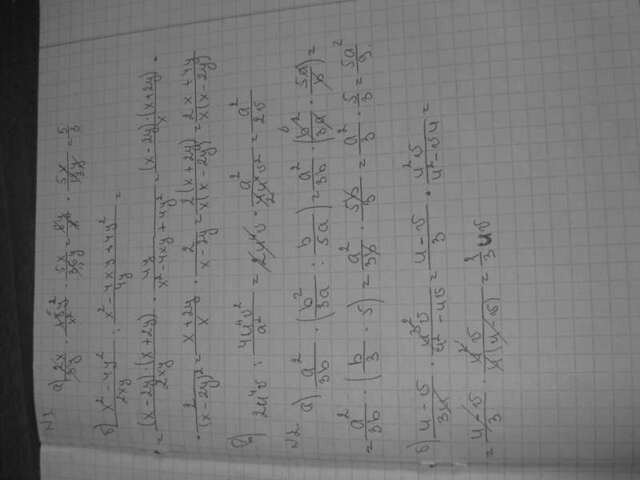 N1 а) 2x/3y · x³y²/x²y · 5x/35y = 8y/x² · 5x/12x = 5/3
б) x² - 4y²/2xy : x² - 4xy + 4y²/4y =
= (x - 2y)·(x + 2y)/2xy · 4y/x² - 4xy + 4y² = (x - 2y)·(x + 2y)/x ·
· 2/(x - 2y)² = x + 2y/x · 2/x - 2y = 2(x + 2y)/x(x - 2y) = 2x + 4y/x(x - 2y)
в) 2u⁴v : 4u⁴v²/a² = 2u⁴v · a²/4u⁴v² = a²/2v
N2. а) a²/3b · (b²/3a : b/5a) = a²/3b · (b²/3a · 5a/b) =
= a²/3b · (b/3 · 5) = a²/3b · 5b/3 = a²/3 · 5/3 = 5a²/9.
б) u - v/3u · u³v/u² - uv = u - v/3 · u²v/u² - vu =
= u - v/3 · u²v/u(u - v) = 1/3 uv